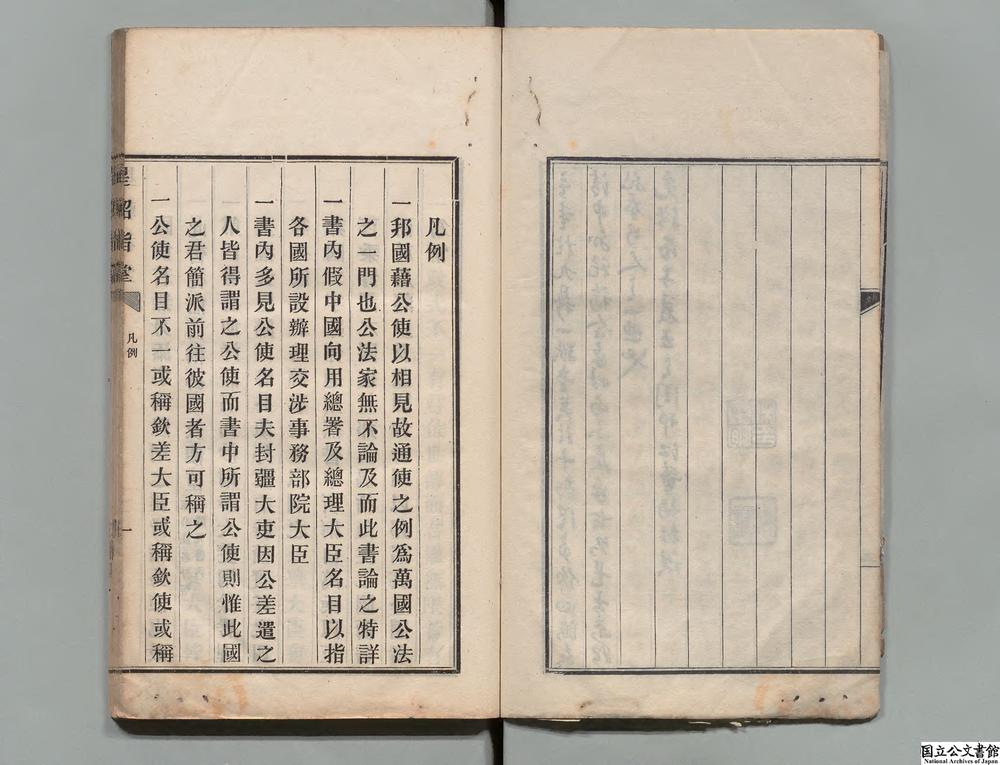 凡例
一邦國藉公使以相見故通使之例爲萬國公法
之一門也公法家無不論及而此書論之特詳
一書內假中國向用總署及總理大臣名目以指
各國所設辦理交涉事務部院大臣
一書內多見公使名目夫封疆大吏因公差遣之
人皆得謂之公使而書中所謂公使則惟此國
之君簡派前往彼國者方可稱之
一公使名目不一或稱欽差大臣或稱欽使或稱
星軺指掌
凡例
一
国立公文書館
National Archives of Japan